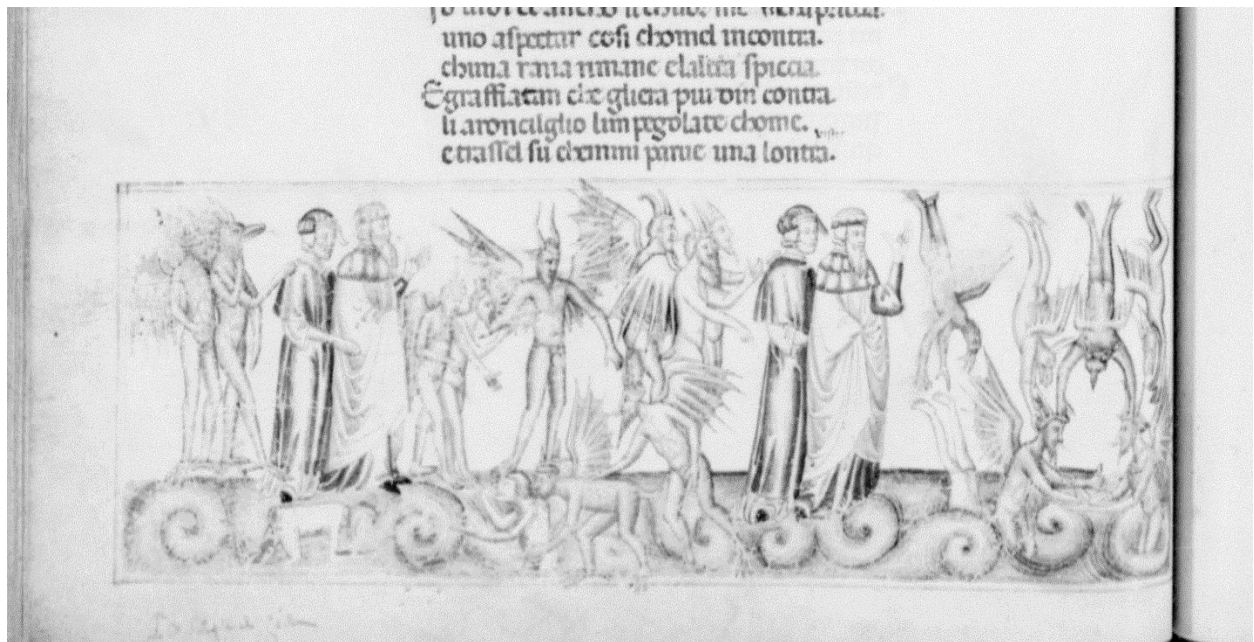 uno aspectar cosi chomel incontra.
chuna rana rimane elaltra spiccia.
Egraffiacan che gliera piu din contra
li aroncilglio limpegolate chome.
etrassel su chemmi parue una lontra.